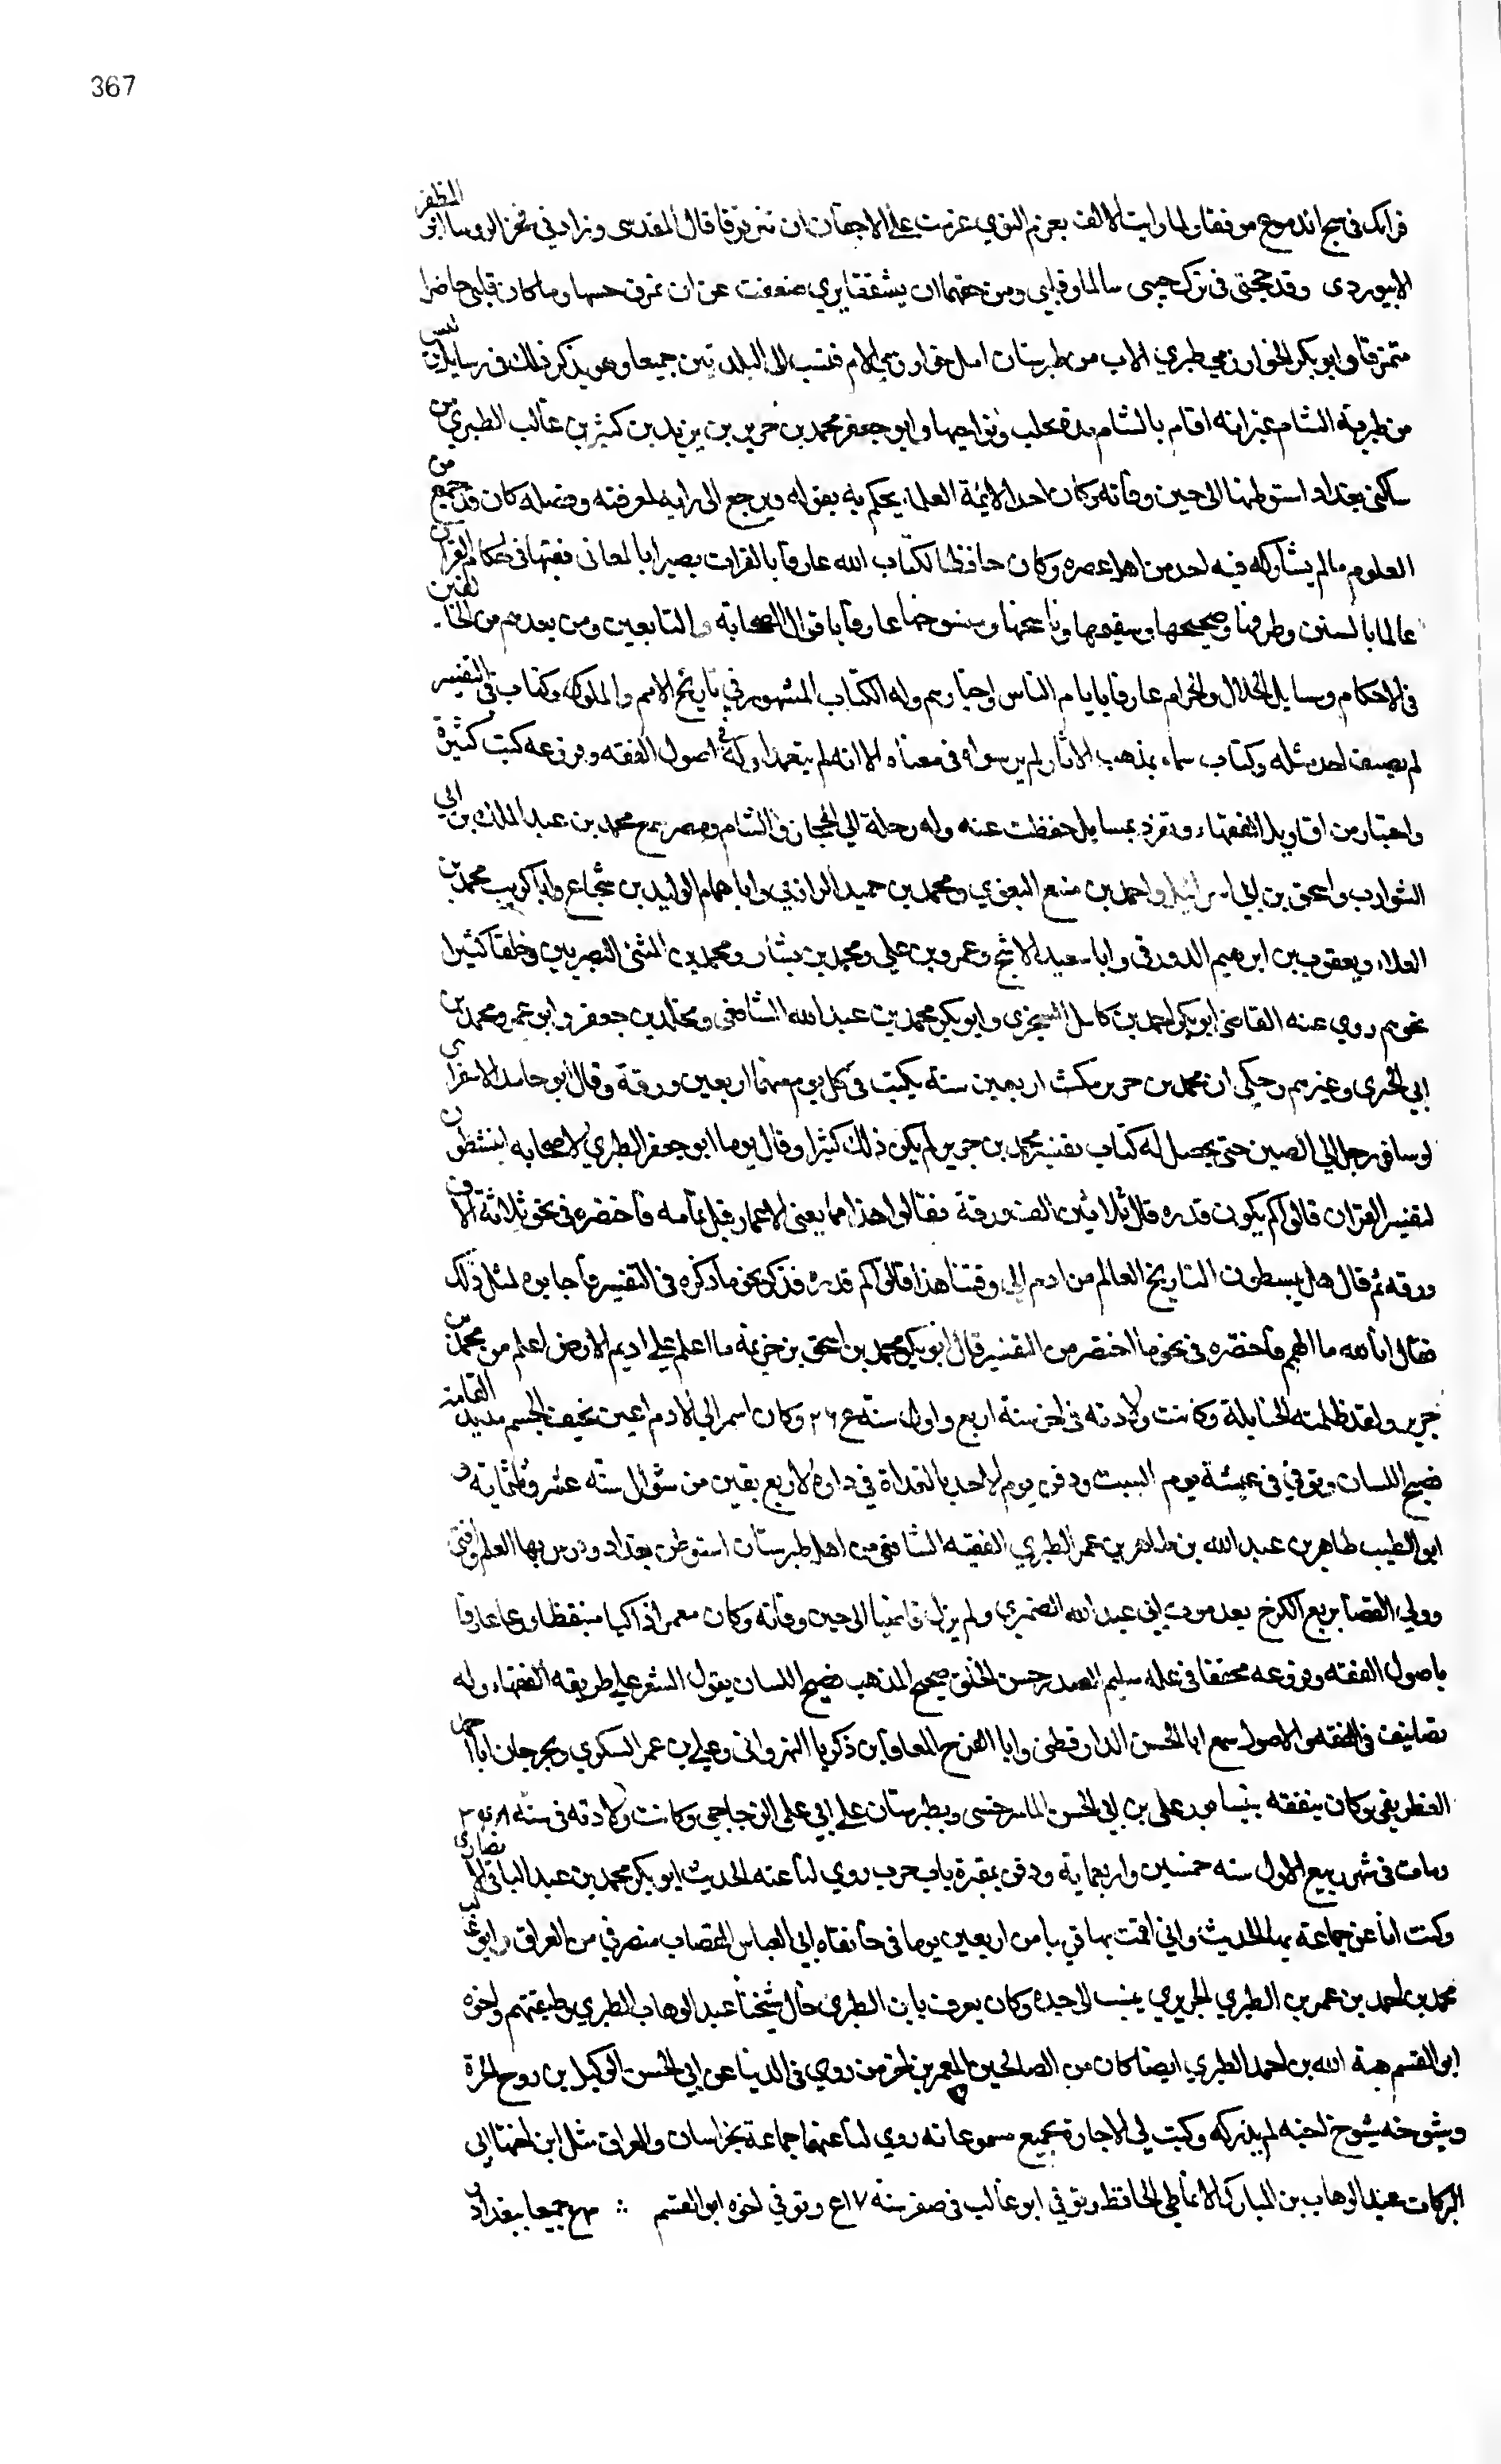 367
المظفر
الابيوردى وقد حجتى فى ترك جيبى سالما وقلبى ومن حقهما ان يشققا يري ضعفت عن ان تمزق حسها وما كان قلبى حاضرا
متمزقا وابو بكر الخوارزمي طبري الاب من طبرستان اصل خوارزمي الام فنسب الى البلدتين جميعا وهو يذكر ذلك فى رسايله ليس
من طبرية الشام غير انه اقام بالشام مدة بحلب ونواحيها وابو جعفر محمد بن جرير بن يزيد بن كثير بن غالب الطبري من
ساكنى بغداد استوطنها الى حين وفاته وكان احد الائمة العلماء يحكم به بقوله ويرجع الى رايه لمعرفته وفضله كان قد جمع من
العلوم ما لم يشاركه فيه احد من اهل عصره وكان حافظا لكتاب الله عارفا بالقرات بصيرا بالمعانى فقيها فى احكام القران
عالما بالسنن وطرقها وصحيحها وسقيمها وناسخها ومنسوخها عارفا باقوال الصحابة والتابعين ومن بعدهم من الخالفين
فى الاحكام ومسايل الحلال والحرام عارفا بايام الناس واخبارهم وله الكتاب المشهور في تاريخ الامم والملوك وكتاب فى التفسير
لم يصنف احد مثله وكتاب سماه بذهب الاثار لم ير سواه فى معناه الا انه لم يتمه وله فى اصول الفقه وفروعه كتب كثيرة
واختيار من اقاويل الفقهاء وتفرد بمسايل حفظت عنه وله رحلة الي الحجاز والشام ومصر سمع محمد بن عبد الملك بن ابي
الشوارب واسحق بن ابى اسرائيل واحمد بن منيع البغوي ومحمد بن حميد الرازي وابا همام الوليد بن شجاع وابا كريب محمد بن
العلاء ويعقوب بن ابرهيم الدورقى وابا سعيد الاشج وعمرو بن علي ومحمد بن بشار ومحمد بن المثنى البصريين وخلقا كثيرا
نحوهم روى عنه القاضى ابو بكر احمد بن كامل الشجرى وابو بكر محمد بن عبد الله الشافعى ومخلد بن جعفر وابن عمرو محمد بن
وغيرهم وحكى ان محمد بن جرير مكث اربعين سنة يكتب فى كل يوم منها اربعين ورقة وقال ابو حامد الاسفراى
لو سافر رجل الي الصين حتى يحصل له كتاب تفسير محمد بن جرير لم يكن ذلك كثيرا وقال يوما ابو جعفر الطبري لاصحابه اتنشطون
لتفسير القران قالوا كم يكون قدره قال ثلاثين الف ورقة فقالوا هذا مما يفنى الاعمار قبل تمامه فاختصره فى نحو ثلاثة الاف
ورقه ثم قال هل تنشطون التاريخ العالم من ادم الي وقتنا هذا قالوا كم قدره فذكر نحو ما ذكره فى التفسير فاجابوه لمثل ذلك
فقال انا لله ما الهمم فاختصره فى نحو ما اختصر من التفسير قال ابو بكر محمد بن اسحق بن خزيمة ما اعلم على اديم الارض اعلم من محمد بن
جرير ولقد ظلمته الحنابلة وكانت ولادته فى اخر سنة اربع واول سنة وكان اسمر الي الادم اعين نحيف الجسم مديد القامة
فصيح اللسان وتوفي فى عيشة يوم السبت ودفن يوم الاحد بالغداة في داره لاربع بقين من شوال سنة عشر وثلثماية و
ابو الطيب طاهر بن عبد الله بن طاهر بن عمر الطبري الفقيه الشافعى من اهل طبرستان استوطن بغداد ودرس بها العلم وافتى
وولي القضا بربع الكرخ بعد موت ابى عبد الله الصيمري ولم يزل قاضيا الى حين وفاته وكان معمرا ذاكيا متيقظا ورعا عارفا
باصول الفقه وفروعه محققا فى علمه سليم الصدر حسن الخلق صحيح المذهب فصيح اللسان يقول الشعر علي طريقه الفقهاء وله
تصانيف فى الفقه والاصول سمع ابا الحسن الدارقطنى وابا الفرج المعافا بن زكريا النهروانى وعلي بن عمر السكري وبجرجان ابا احمد
الغطريفى وكان يتفقه بنيسابور على بن ابي الحسن الماسرخسى وبطبرستان علي ابي علي الزجاجي وكانت ولادته فى سنة
ومات فى شهر ربيع الاول سنه خمسين واربعماية ودفن بمقبرة باب حرب روي لنا عنه الحديث ابو بكر محمد بن عبد الباقى الانصارى
وكنت انا عن جماعة بها الحديث واني اقمت بها قريبا من اربعين يوما فى خانقاه ابي العباس القصاب منصرفي من العراق وابو غالب
محمد بن احمد بن عمر بن الطبري الجريري ينسب الى جده وكان يعرف بابن الطبرى خال شيخنا عبد الوهاب الطبري وطبقتهم واخوه
ابو القسم هبة الله بن احمد الطبري ايضا كان من الصالحين المعمرين اخر من روى فى الدنيا عن ابي الحسن الوكيل بن روح الحرة
وشيوخه شيوخ اخيه لم يدركه وكتب لي الاجازة بجميع مسموعاته روي لنا عنهما جماعة بخراسان والعراق مثل ابن اختهما ابى
البركات عبد الوهاب بن المبارك الانماطي الحافظ وتوفي ابو غالب فى صفر سنة ٤١٧ وتوفي اخوه ابو القسم جميعا ببغداد